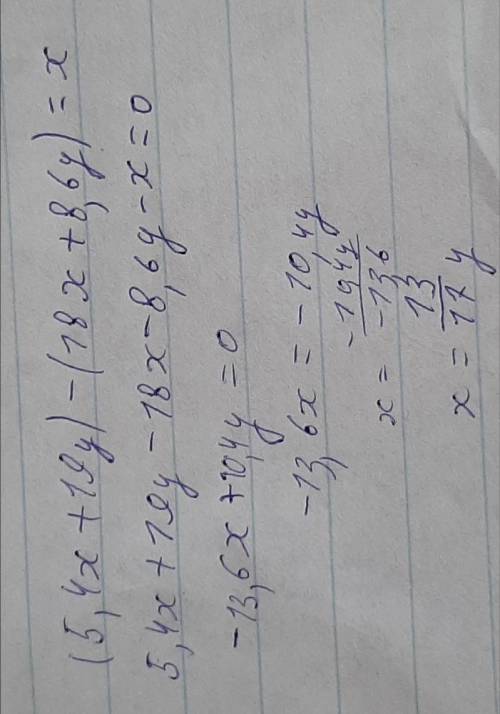 (5,4x+19y)-(18x+8,6y)=x
5,4x+19y-18x-8,6y-x=0
-13,6x+10,4y=0
-13,6x=-10,4y
x=-10,4y/-13,6
x=13/17 y